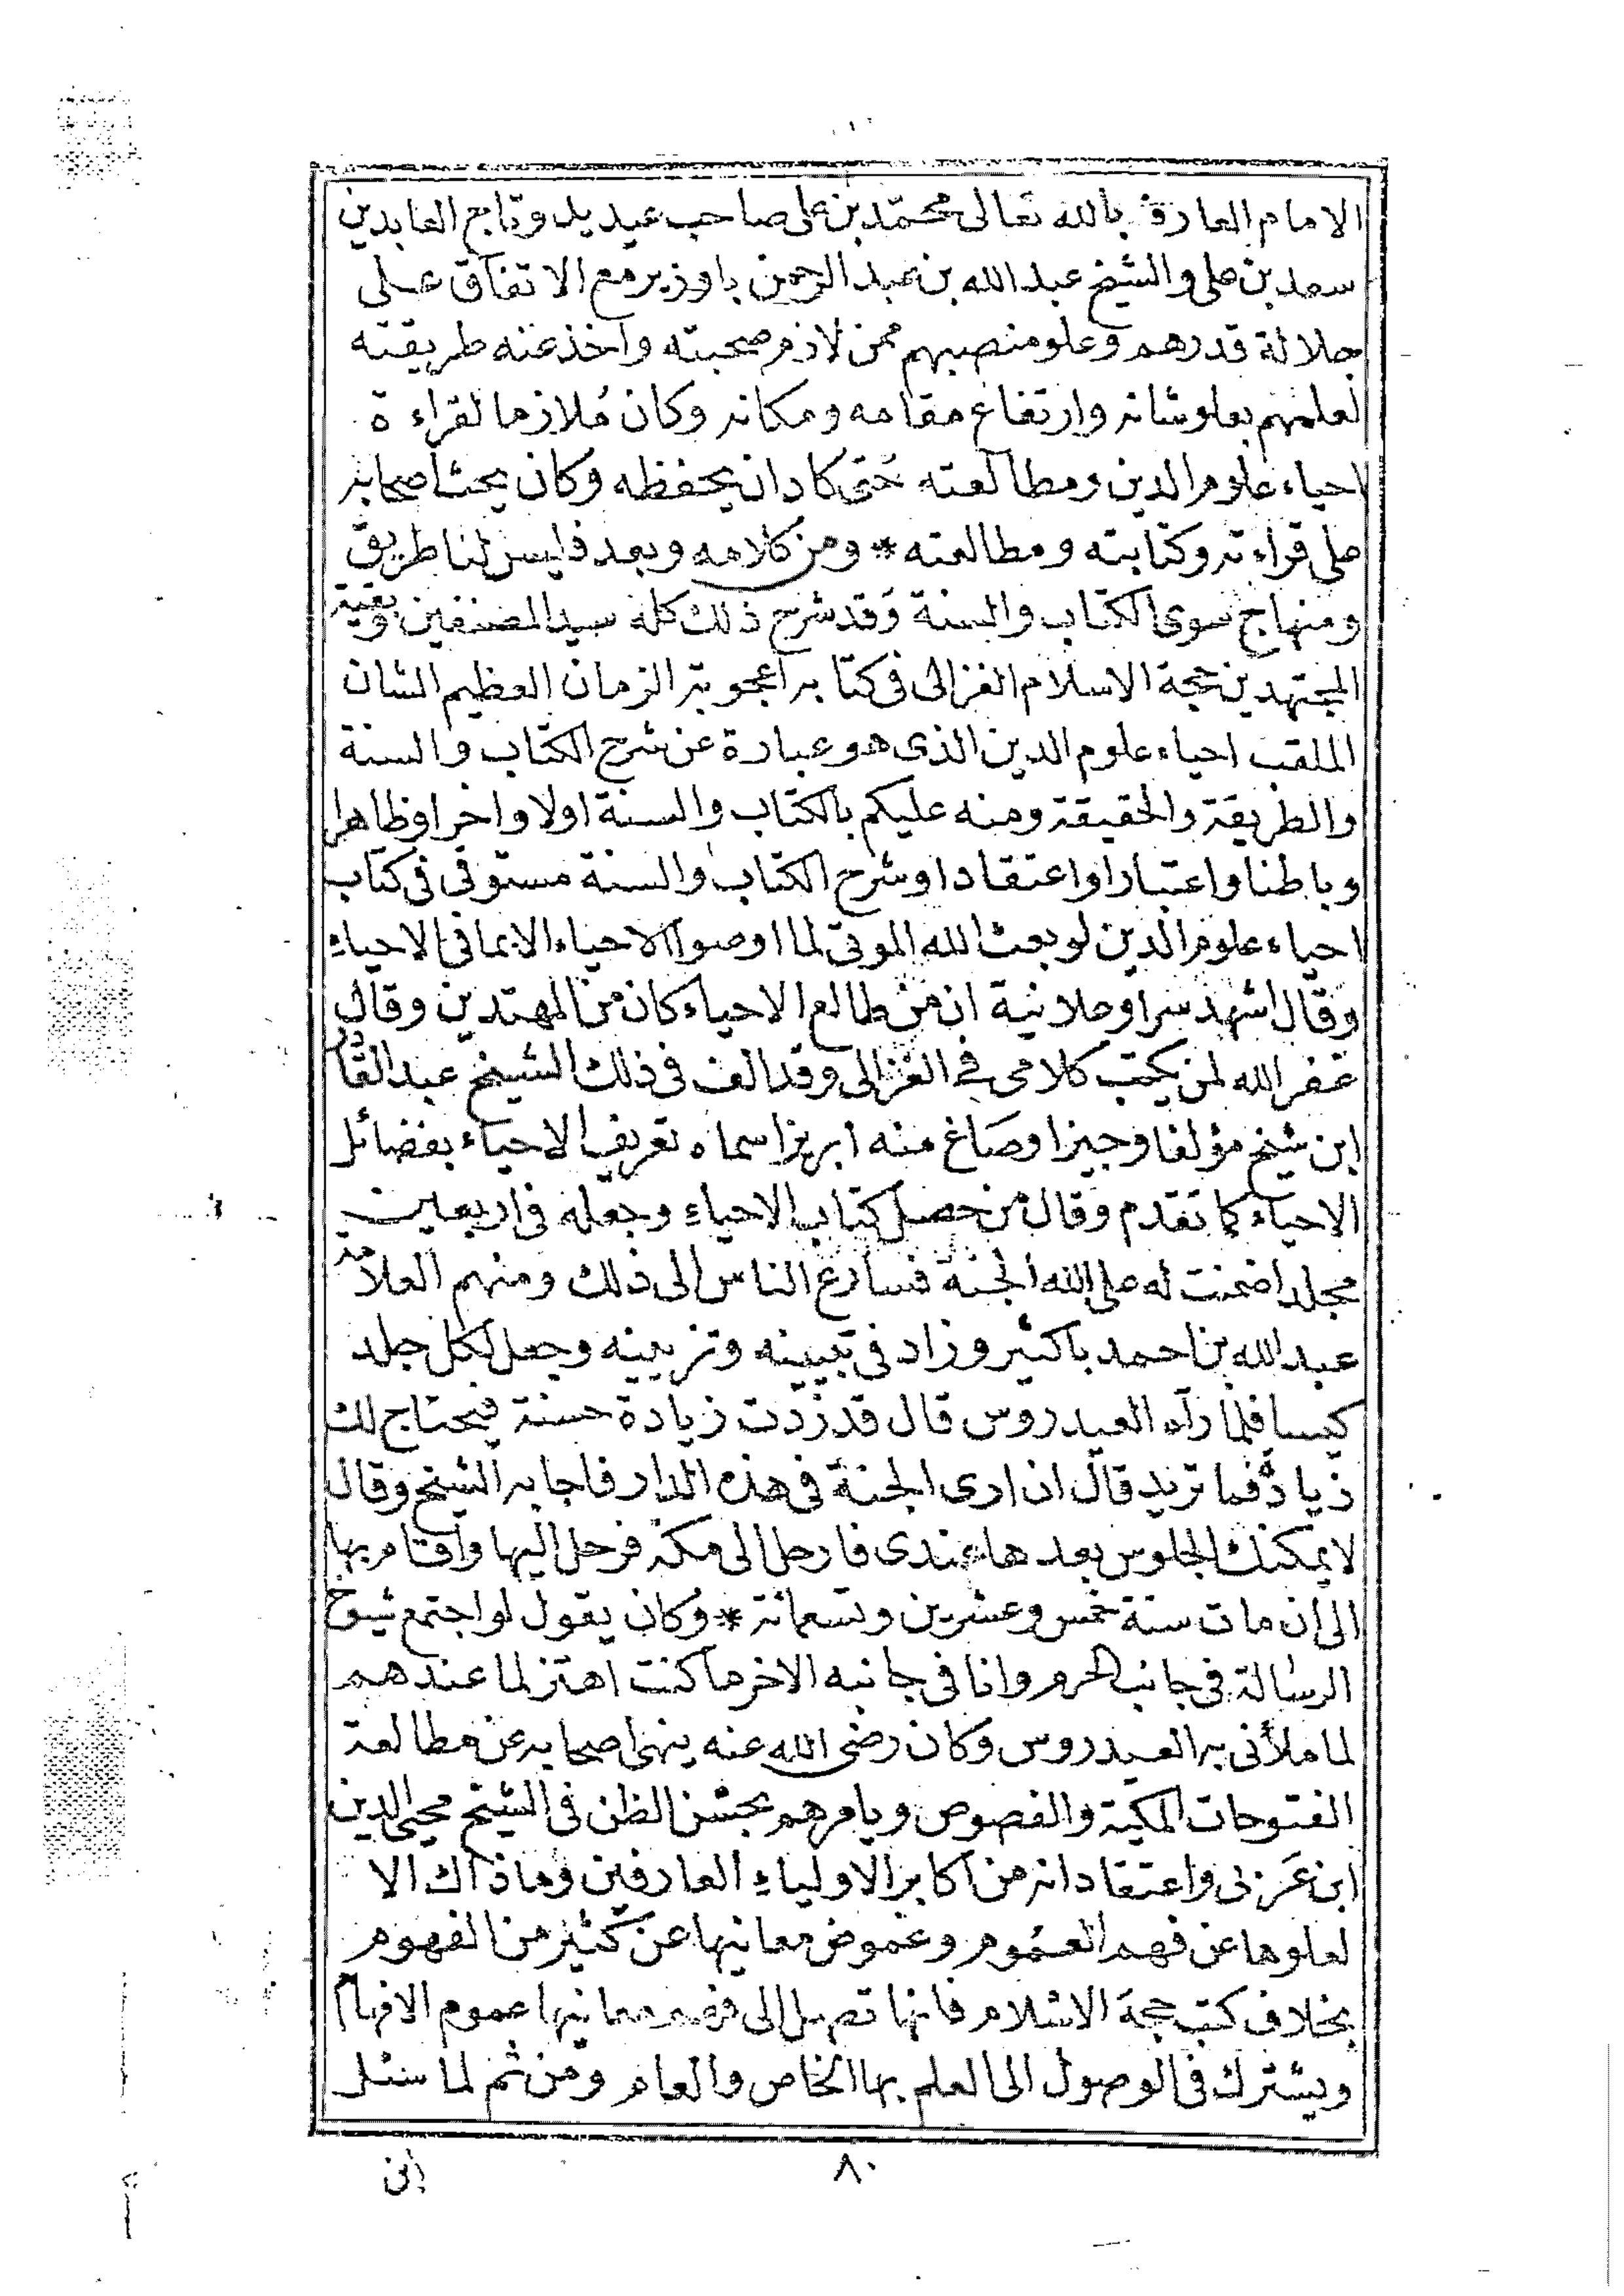 الامام العارف بالله تعالى محمّد بن على صاحب عيديد وتاج العابدين
سعد بن على والشيخ عبد الله بن عبد الرحمن باوزير مع الاتفاق على
جلالة قدرهم وعلو منصبهم ممن لازم صحبته واخذ عنه طريقته
لعلمهم بعلو شانه وارتفاع مقامه ومكانه وكان مُلازما لقراءة
احياء علوم الدين ومطالعته حَتى كاد ان يحفظه وكان يحث اصحابه
على قراءته وكتابته ومطالعته * ومن كلامه وبعد فليس لنا طريق
ومنهاج سوى الكتاب والسنة وَقد شرح ذلك كله سيد المصنفين وبقية
المجتهدين حجة الاسلام الغزالى فى كتابه اعجوبة الزمان العظيم الشان
الملقب احياء علوم الدين الذى هو عبارة عن شرح الكتاب والسنة
والطريقة والحقيقة ومنه عليكم بالكتاب والسنة اولا واخرا وظاهرا
وباطنا واعتبارا واعتقادا وشرح الكتاب والسنة مستوفى فى كتاب
احياء علوم الدين لو بعث الله الموتى لما اوصوا الاحياء الا بما فى الاحياء
وقال اشهد سرا وعلانية ان من طالع الاحياء كان من المهتدين وقال
غفر الله لمن يكتب كلامى في الغزالى وقد الف فى ذلك الشيخ عبد القادر
ابن شيخ مؤلفا وجيزا وصَاغ منه ابريزا سماه تعريف الاحياء بفضائل
الاحياء كما تقدم وقال من حصل كتاب الاحياء وجعله فى اربعين
مجلدا ضمنت له على الله الجنة فسارع الناس الى ذلك ومنهم العلامة
عبد الله بن احمد باكثير وزاد فى تبيينه وتزيينه وجعل لكل جلد
كيسا فلما رآه العيدروس قال قد زدت زيادة حسنة فيحتاج لك
زيادة فما تريد قال ان ارى الجنة فى هذه الدار فاجابه الشيخ وقال
لا يمكنك الجلوس بعدها عندى فارحل الى مكة فرحل اليها واقام بها
الى ان مات سنة خمس وعشرين وتسعمائة * وكان يقول لو اجتمع شيوخ
الرسالة فى جانب الحرم وانا فى جانبه الاخر ما كنت اهتز لما عندهم
لما ملأنى به العيدروس وكان رضى الله عنه ينهى اصحابه عن مطالعة
الفتوحات المكية والفصوص ويامرهم بحسن الظن فى الشيخ محيى الدين
ابن عَربى واعتقاد انه من اكابر الاولياء العارفين وما ذاك الا
لعلوها عن فهم العمُوم وغموض معانيها عن كثير من الفهوم
بخلاف كتب حجة الاسلام فانها تصل الى فهم معانيها عموم الافهام
ويشترك فى الوصول الى العلم بها الخاص والعام ومن ثم لما سئل
٨٠
ابن